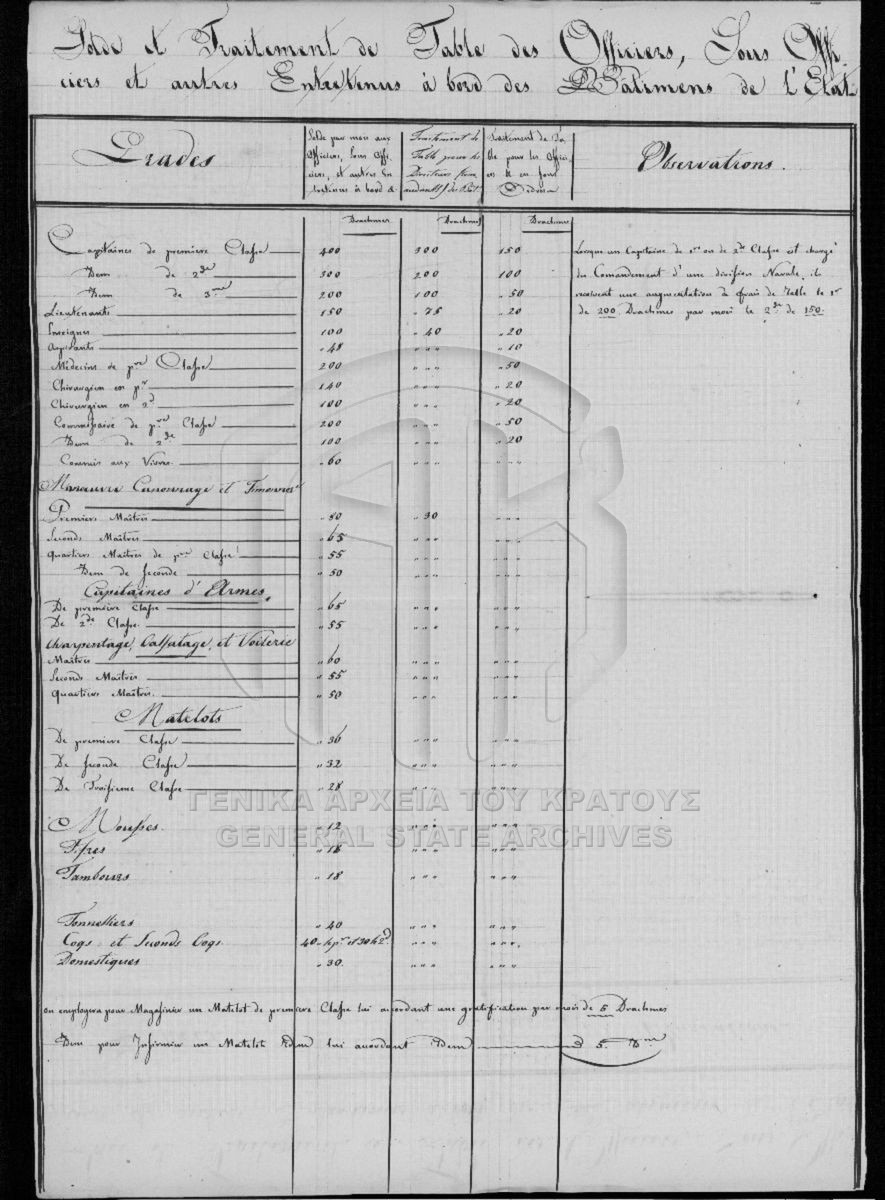 Solde et Traitement de Table des Officiers, Sous Offi-
ciers et autres Entretenus à bord des Bâtimens de l'Etat
Grades
Solde par mois aux
Officiers, Sous Offi-
ciers, et autres En
tretenus à bord &
Traitement de
Table pour les
Traitement de Ta
ble pour les Offici
ers &
Observations.
Drachmes Drachmes Drachmes
Capitaines de premiere Classe 400 300 150
Dem de 2de 300 200 100
Dem de 3me 200 100 " 50
Lieutenants 150 " 75 " 20
Enseignes 100 " 40 " 20
Aspirants " 48 " " " " 10
Médecins de pre Classe 200 " " " " 50
Chirurgien en pr 140 " " " " 20
Chirurgien en 2d 100 " " " " 20
Commissaire de pre Classe 200 " " " " 50
Dem de 2de 100 " " " " 20
Commis aux Vivres " 60 " " " " " "
Lorsque un Capitaine de 1er ou de 2de Classe est chargé
du Comandement d'une division Navale, il
recoivent une augmentation de frais de Table le 1er
de 200 Drachmes par mois le 2de de 150.
Manœuvre Canonnage et Timonnerie
Premiers Maîtres " 80 " 30 " " "
Seconds Maîtres " 65 " " " " " "
Quartiers Maîtres de pre Classe " 55
Dem de Seconde " 50 " " " " " "
Capitaines d'Armes
De premiere Classe " 65 " " " " " "
De 2de Classe " 55 " " " " " "
Charpentage, Calfatage, et Voilerie
Maîtres " 60 " " " " " "
Seconds Maîtres " 55 " " " " " "
Quartiers Maîtres " 50 " " " " " "
Matelots
De premiere Classe " 36 " " " " " "
De Seconde Classe " 32 " " " " " "
De Troisieme Classe " 28 " " " " " "
ΓΕΝΙΚΑ ΑΡΧΕΙΑ ΤΟΥ ΚΡΑΤΟΥΣ
GENERAL STATE ARCHIVES
Mousses " 12 " " " " " "
Fifres " 18 " " " " " "
Tambours " 18 " " " " " "
Tonnelliers " 40 " " " " " "
Coqs et Seconds Coqs 40 " le pr et 30 le 2d " " " " " "
Domestiques " 30 " " " " " "
on employera pour Magasinier un Matelot de premiere Classe lui accordant une gratification par mois de 5 Drachmes
Dem pour Infirmier un Matelot Idem lui acordant Idem 5 Dme